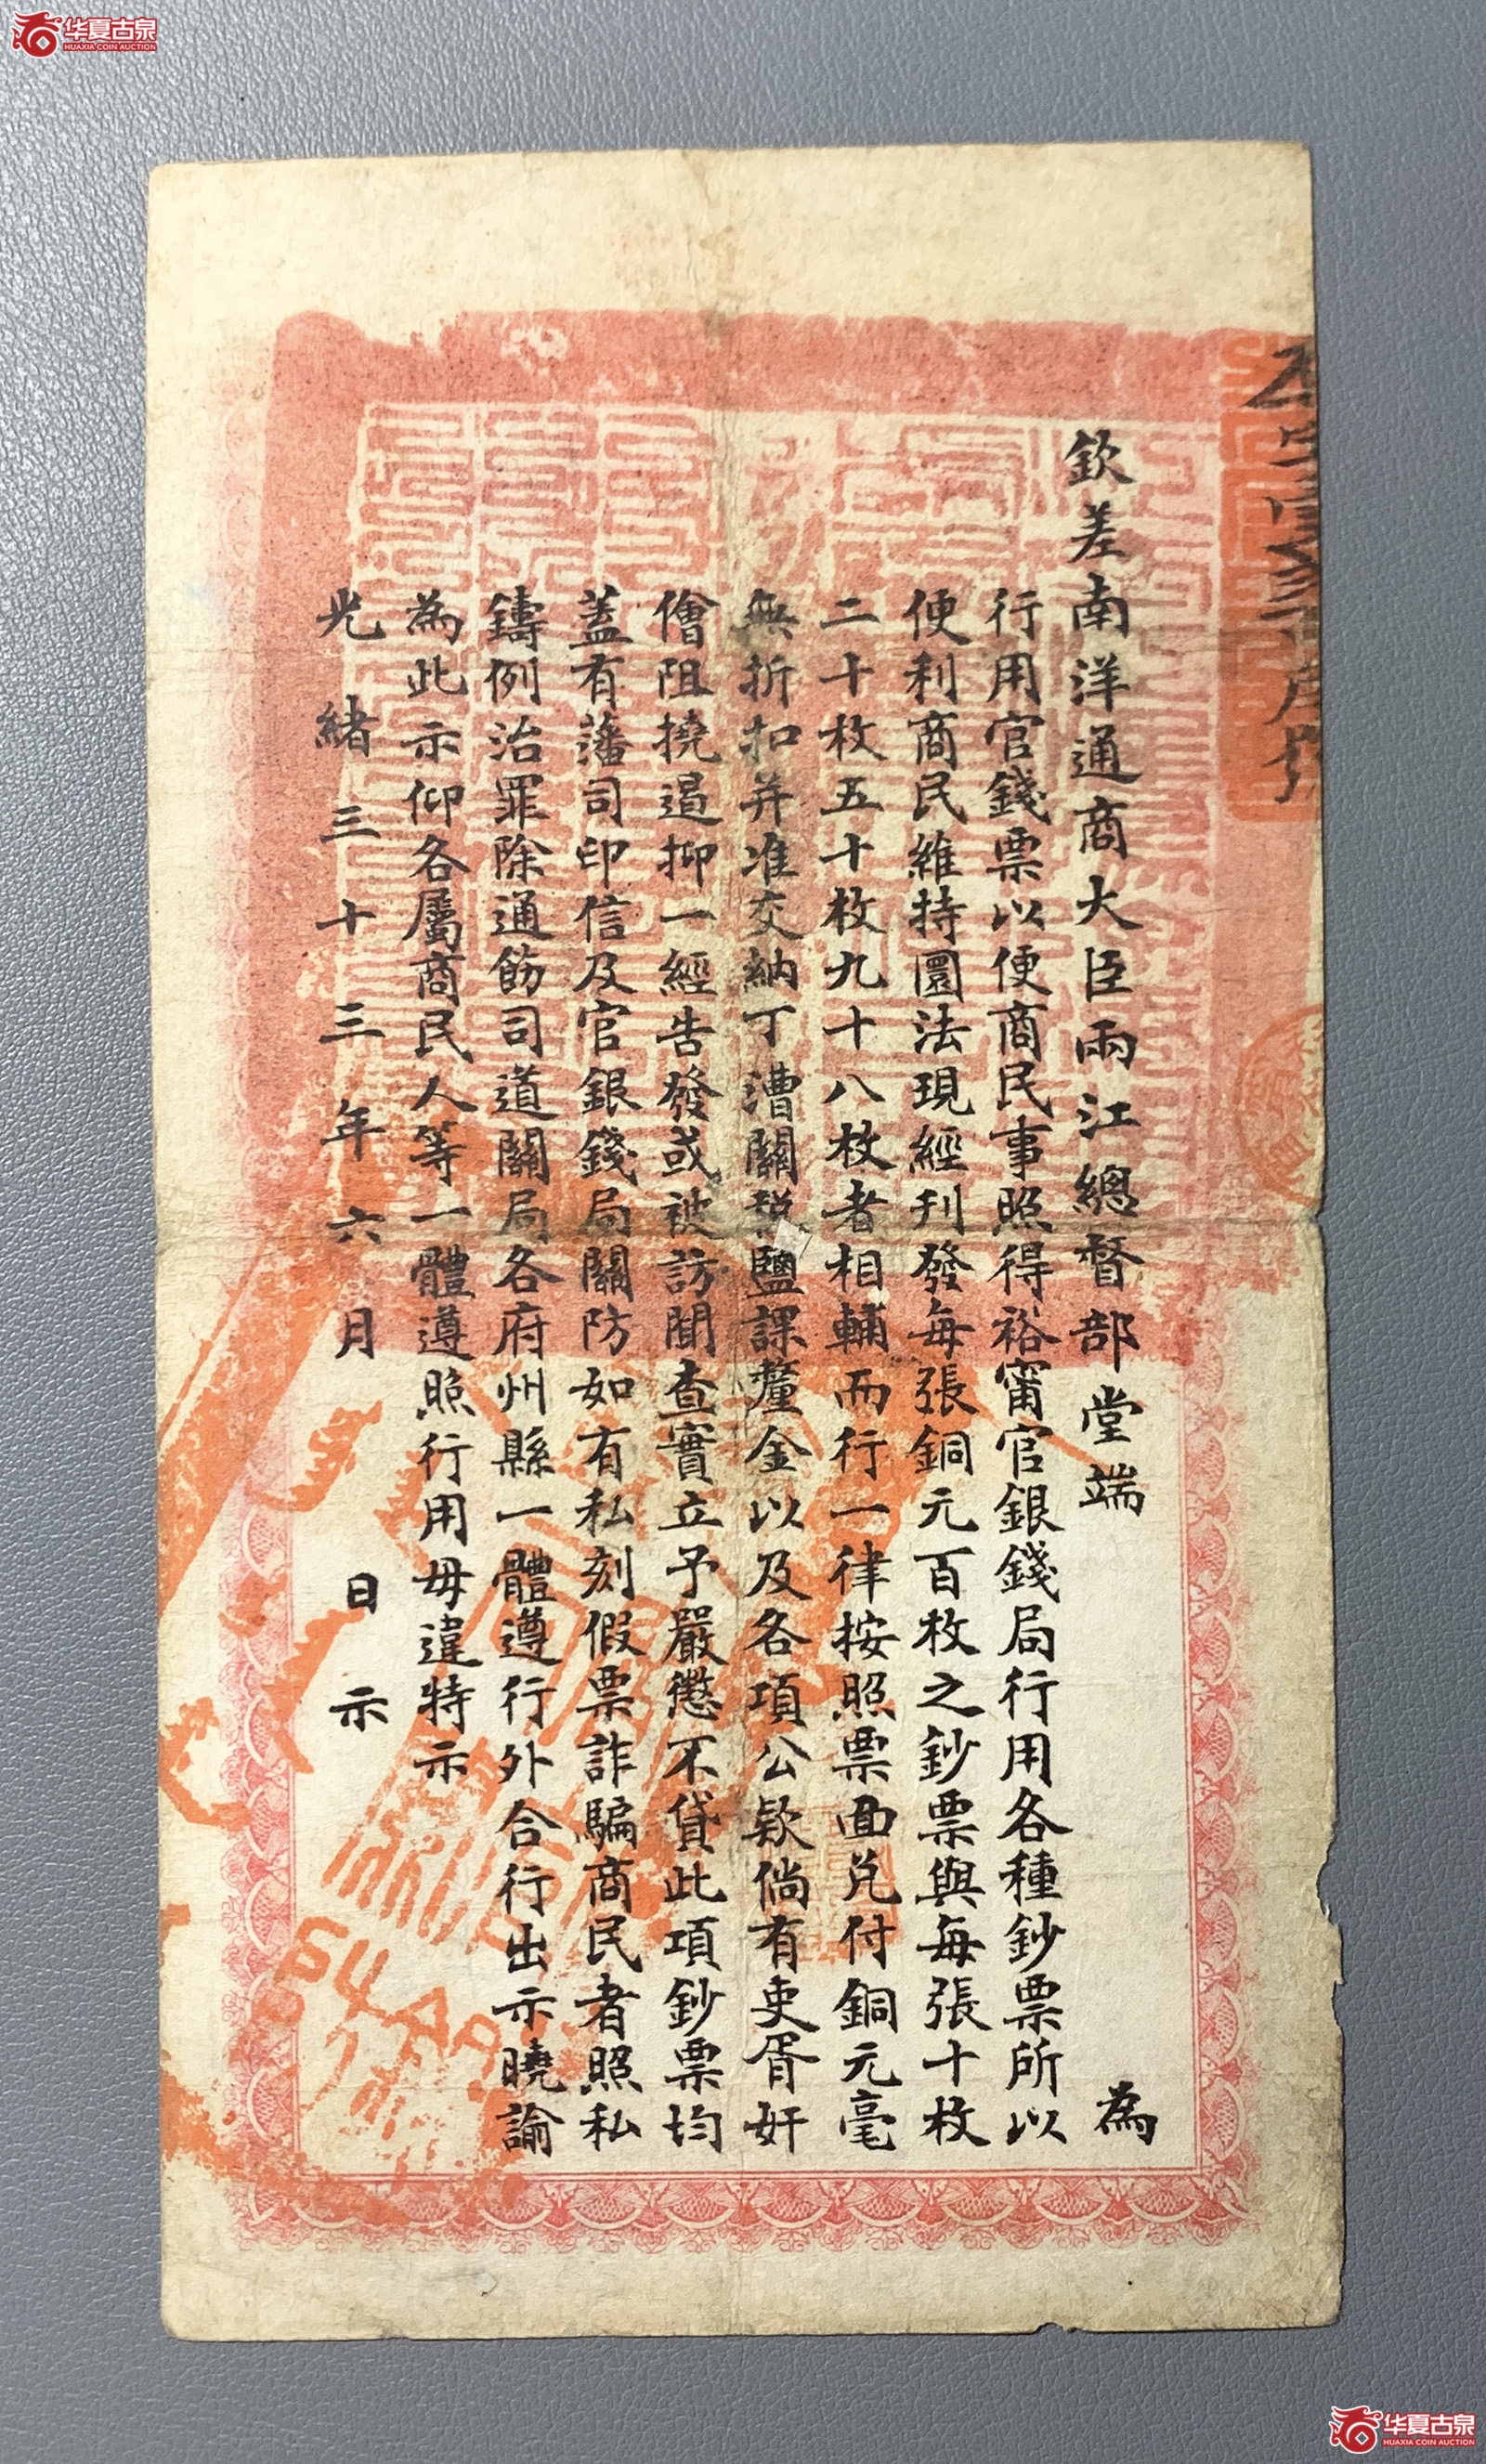 华夏古泉
HUAXIA COIN AUCTION
欽差南洋通商大臣兩江總督部堂端 為
行用官錢票以便商民事照得裕甯官銀錢局行用各種鈔票所以
便利商民維持圜法現經刊發每張銅元百枚之鈔票與每張十枚
二十枚五十枚九十八枚者相輔而行一律按照票面兌付銅元毫
無折扣并准交納丁漕關稅鹽課釐金以及各項公欵倘有吏胥奸
儈阻撓遏抑一經告發或被訪聞查實立予嚴懲不貸此項鈔票均
蓋有藩司印信及官銀錢局關防如有私刻假票詐騙商民者照私
鑄例治罪除通飭司道關局各府州縣一體遵行外合行出示曉諭
為此示仰各屬商民人等一體遵照行用毋違特示
光緒三十三年六月 日示
华夏古泉
HUAXIA COIN AUCTION